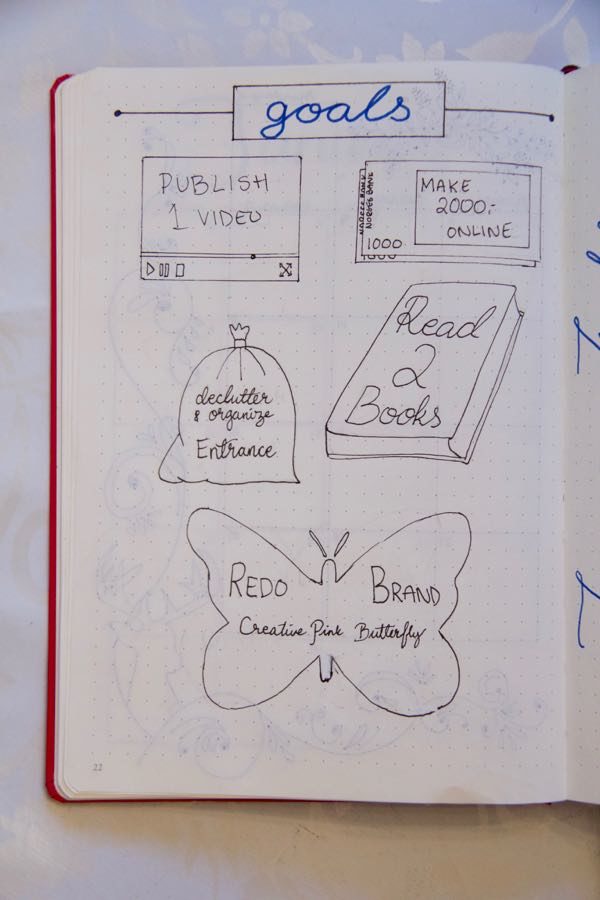 goals
PUBLISH
1 VIDEO
NORGES BANK
1000
1000
MAKE
2000,-
ONLINE
Read
2
Books
declutter
& organize
Entrance
REDO BRAND
Creative Pink Butterfly
22